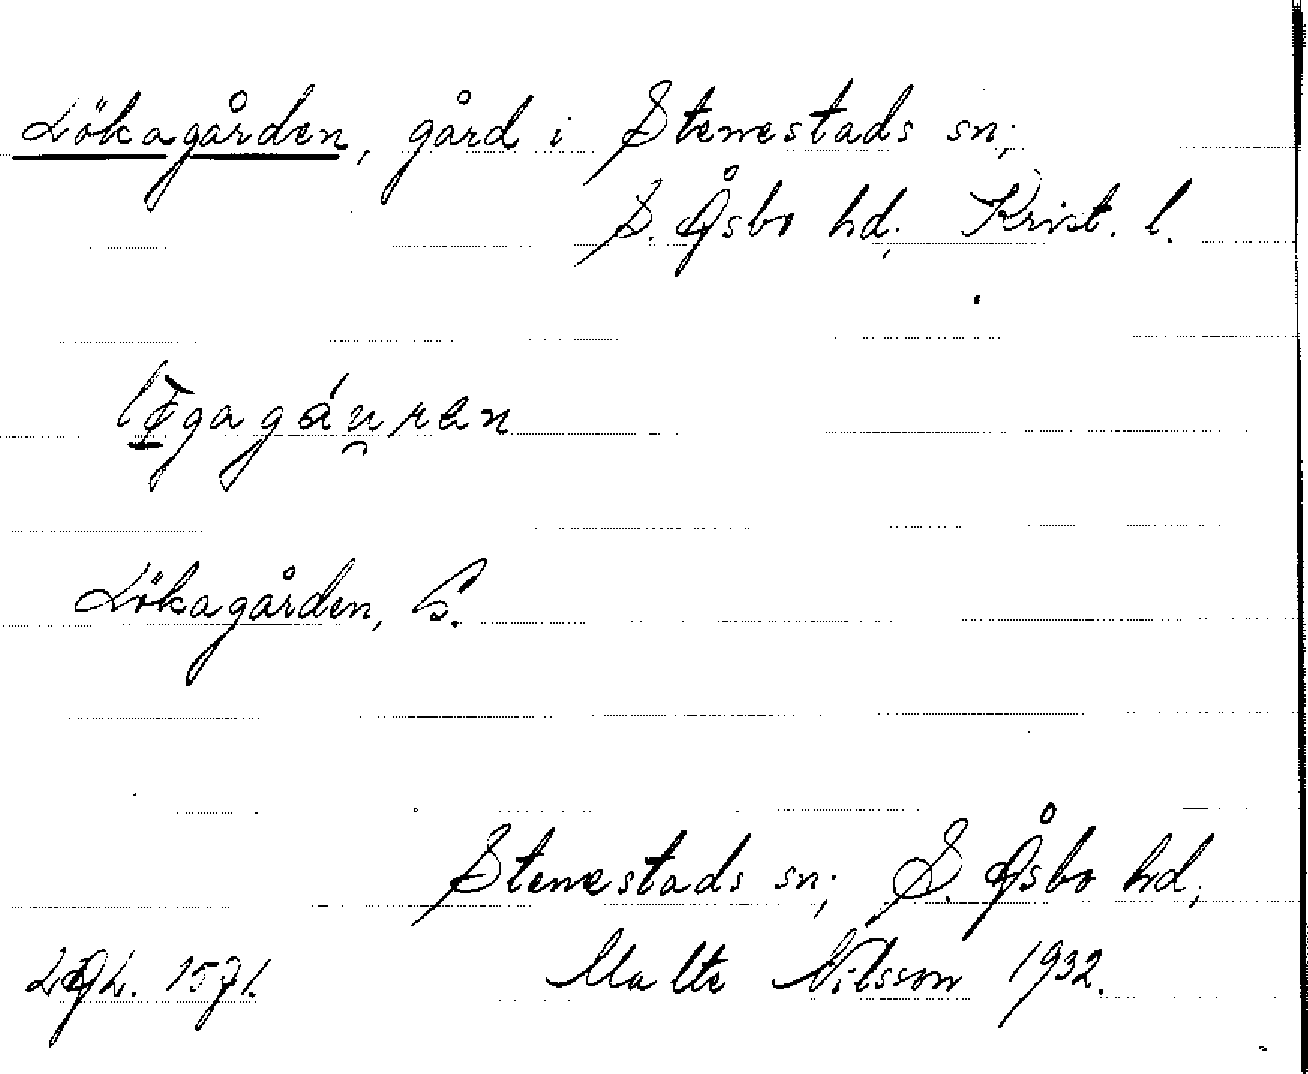 Lökagården, gård i Stenestads sn;
S. Åsbo hd; Krist. l.
Lökagården, G.
Stenestads sn; S. Åsbo hd;
1571. Malte Nilsson 1932.